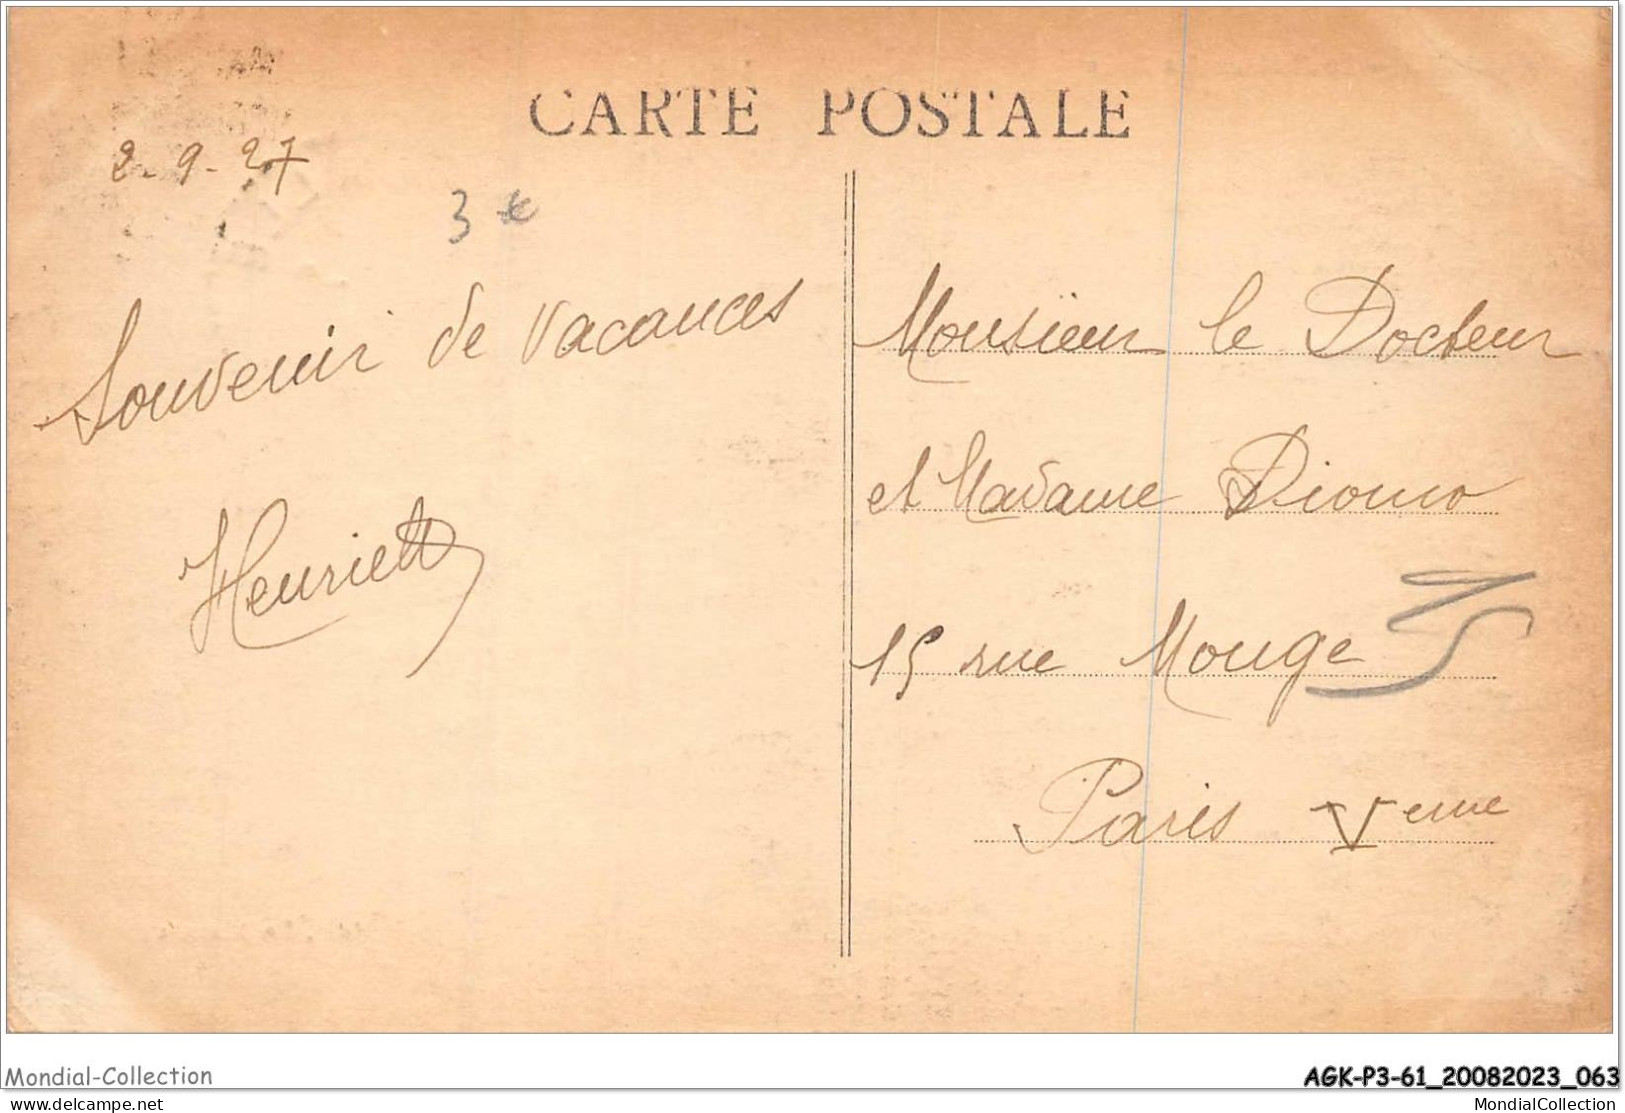 CARTE POSTALE
2-9-27
3 €
Souvenir de vacances
Henriette
Monsieur le Docteur
et Madame
15 rue Mouge
Paris Veme
Mondial-Collection
AGK-P3-61_20082023_063
delcampe.net
MondialCollection